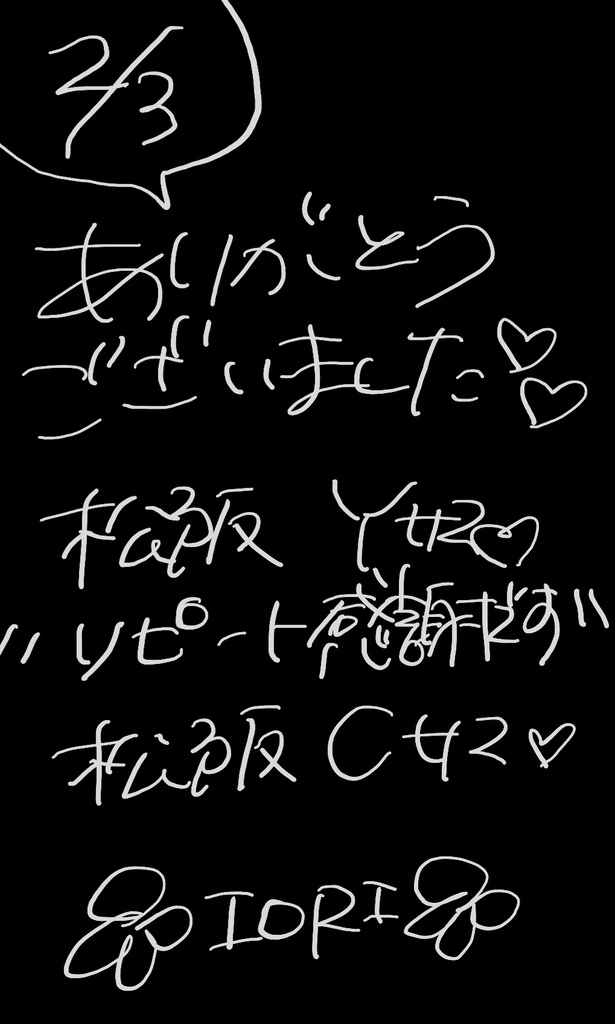 2/3
ありがとう
ございました♡♡
松阪 Yサン♡
"リピート感謝です"
松阪 Cサン♡
IORI